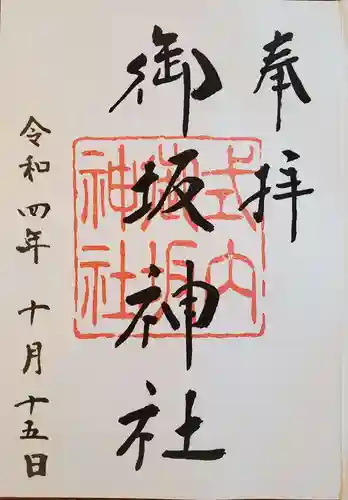 奉拝
式内
御坂
神社
御坂神社
令和四年十月十五日